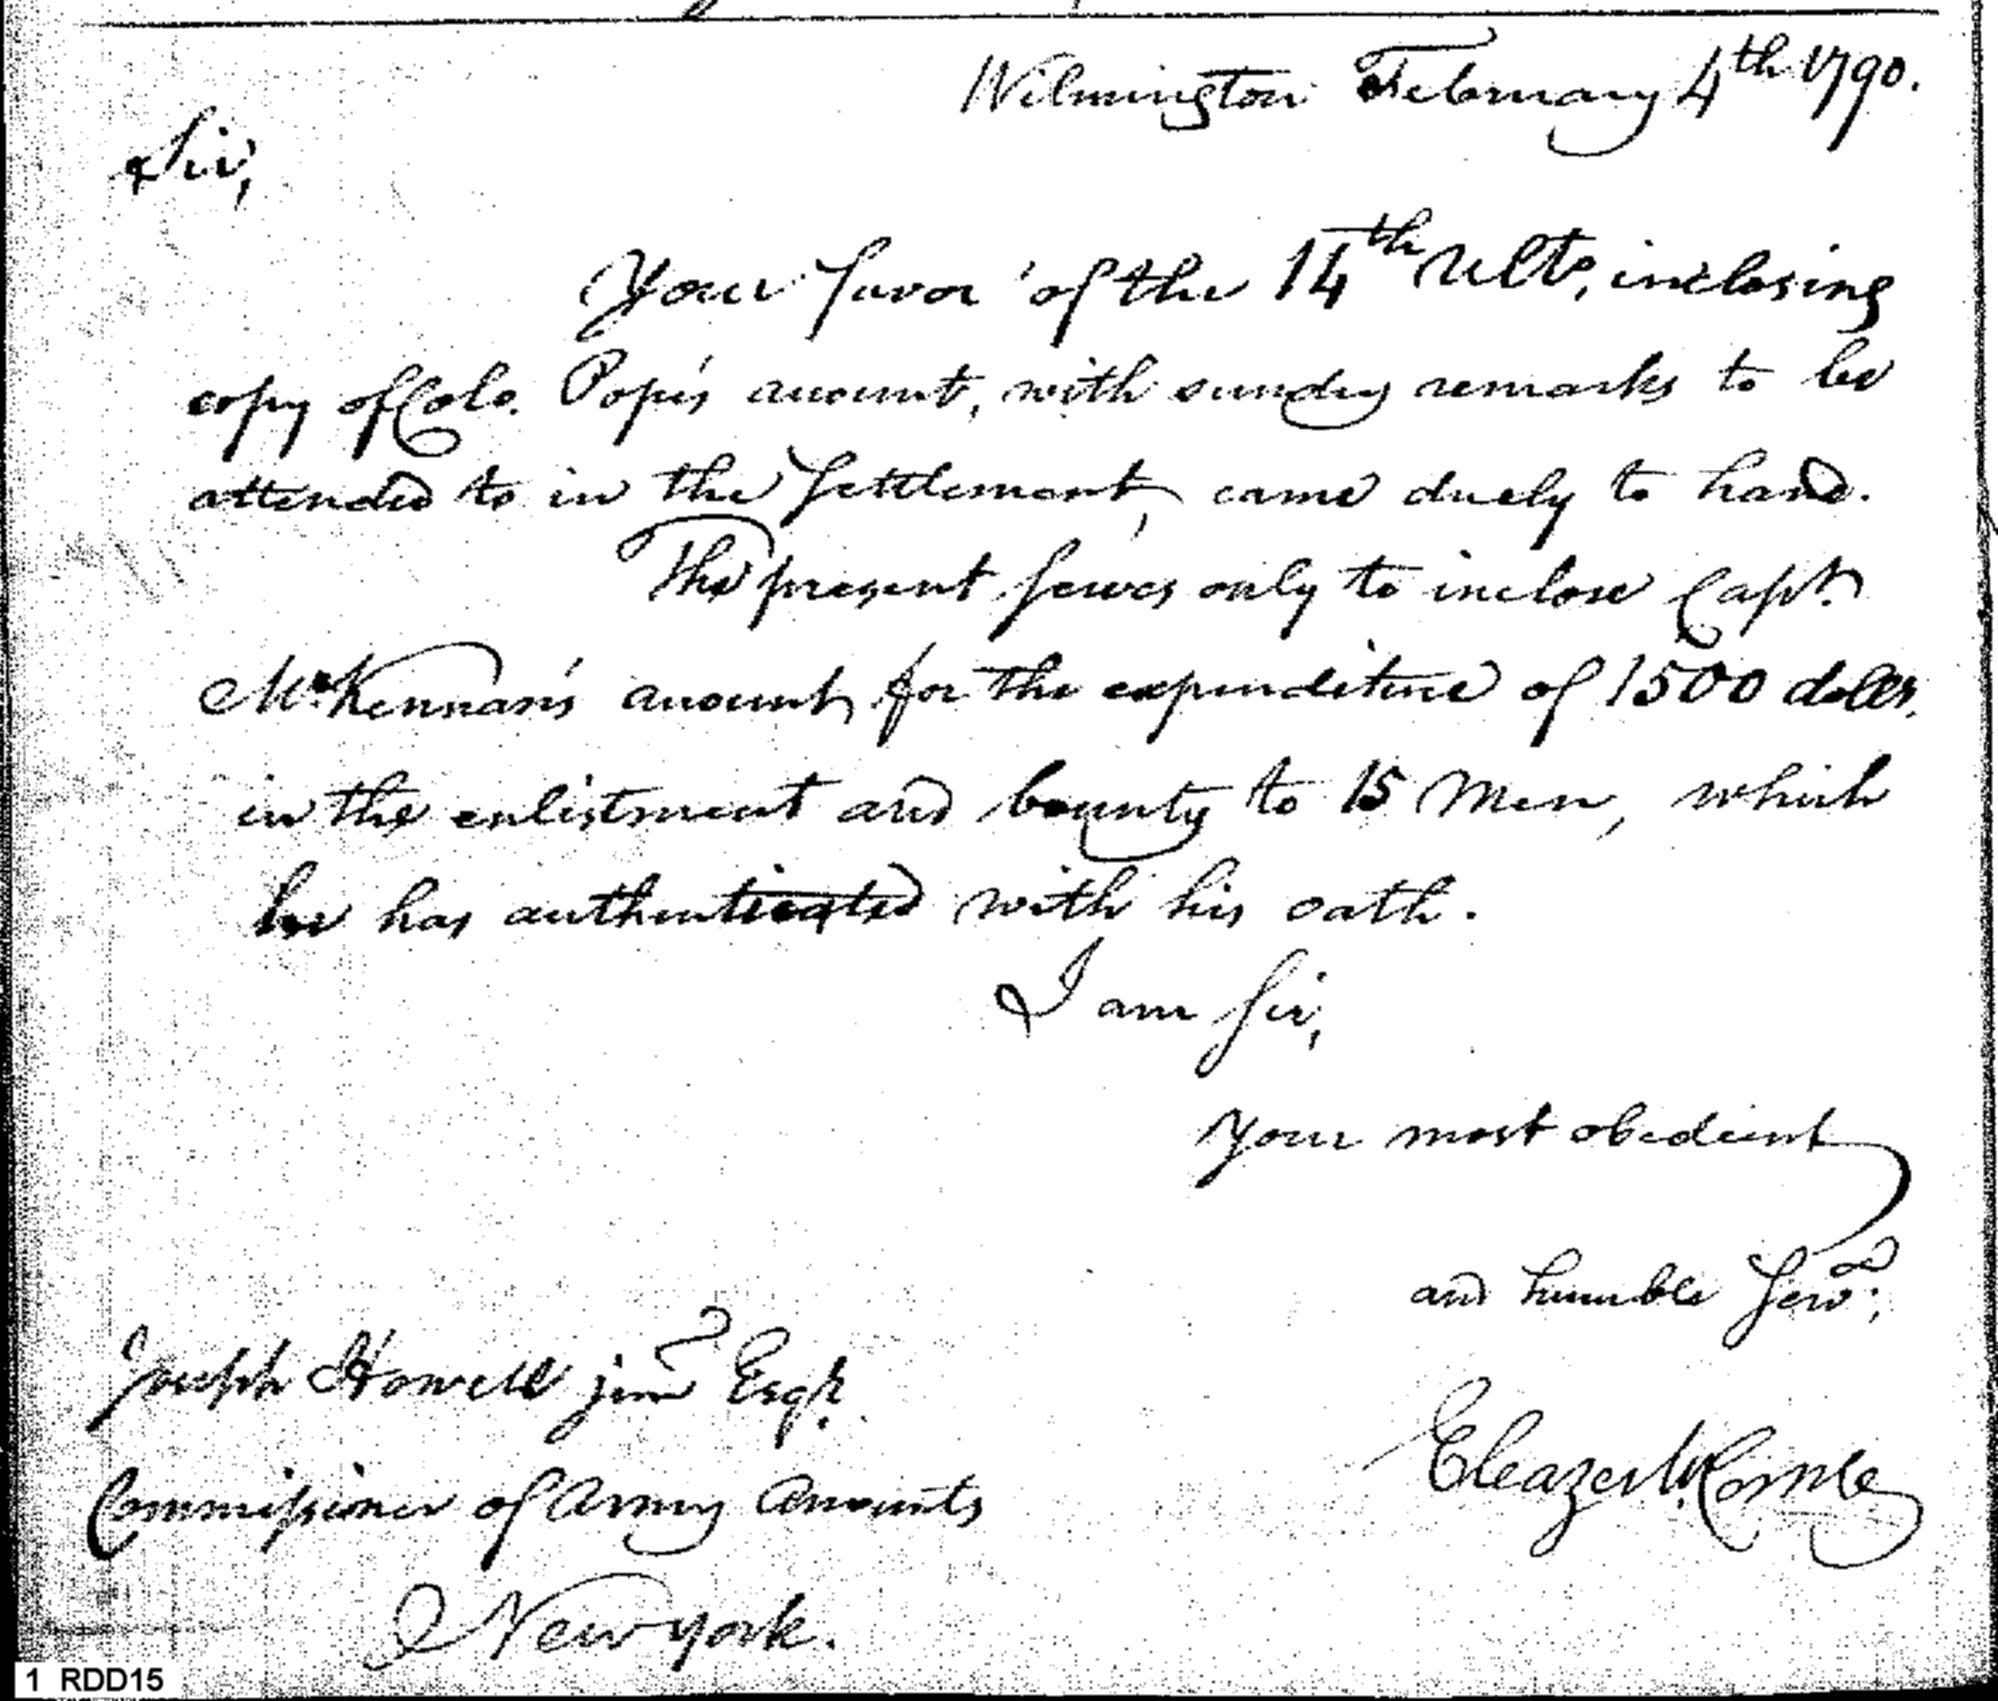 Wilmington February 4th 1790.
Sir,
Your favor of the 14th Ulto, inclosing
copy of Colo. Pope's account, with sundry remarks to be
attended to in the Settlement, came duely to hand.
The present serves only to inclose Capt.
McKennan's account for the expenditure of 1500 dollrs.
in the enlistment and bounty to 15 Men, which
he has authenticated with his oath.
I am Sir,
your most obedient
and humble Servt.,
Joseph Howell junr Esqr.
Eleazer McComb
Commissioner of Army Accounts
New york.
1 RDD15